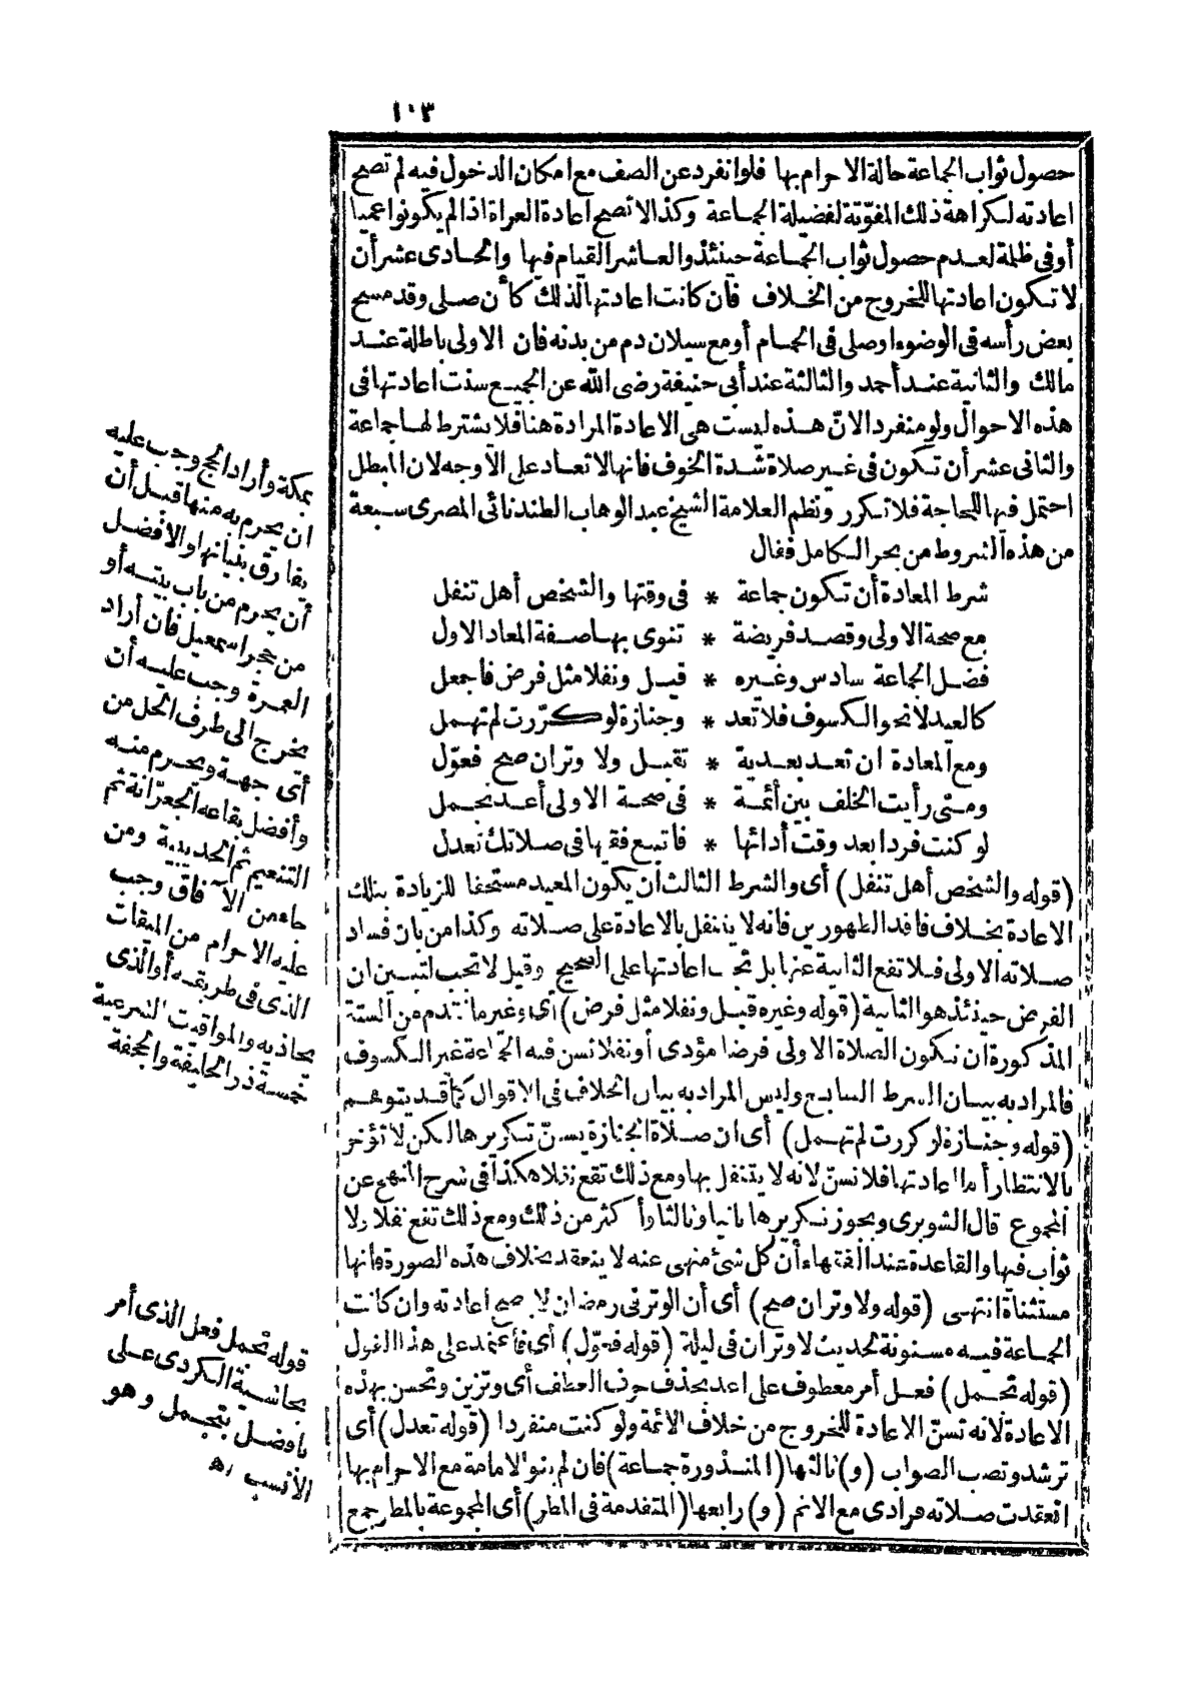 ١٠٣
حصول ثواب الجماعة حالة الاحرام بها فلو انفرد عن الصف مع امكان الدخول فيه لم تصح
اعادته لكراهة ذلك المفوّتة لفضيلة الجماعة وكذا لا تصح اعادة العراة اذا لم يكونوا عميا
أو فى ظلمة لعدم حصول ثواب الجماعة حينئذ والعاشر القيام فيها والحادى عشر أن
لا تكون اعادتها للخروج من الخلاف فان كانت اعادتها لذلك كأن صلى وقد مسح
بعض رأسه فى الوضوء او صلى فى الحمام أو مع سيلان دم من بدنه فان الاولى باطلة عند
مالك والثانية عند أحمد والثالثة عند أبى حنيفة رضى الله عن الجميع سنت اعادتها فى
هذه الاحوال ولو منفردا لانّ هذه ليست هى الاعادة المرادة هنا فلا يشترط لها جماعة
والثانى عشر أن تكون فى غير صلاة شدة الخوف فانها لا تعاد على الاوجه لان المبطل
احتمل فيها للحاجة فلا تكرر ونظم العلامة الشيخ عبد الوهاب الطندتائى المصرى سبعة
من هذه الشروط من بحر الكامل فقال
شرط المعادة أن تكون جماعة * فى وقتها والشخص أهل تنفل
مع صحة الاولى وقصد فريضة * تنوى بها صفة المعاد الاول
فضل الجماعة سادس وغيره * قيل ونفلا مثل فرض فاجعل
كالعيد لا نحو الكسوف فلا تعد * وجنازة لو كرّرت لم تهمل
ومع المعادة ان تعد بعدية * تقبل ولا وتران صح فعوّل
ومتى رأيت الخلف بين أئمة * فى صحة الاولى أعد تجمل
لو كنت فردا بعد وقت أدائها * فاتبع فقيها فى صلاتك تعدل
(قوله والشخص أهل تنفل) أى والشرط الثالث أن يكون المعيد مستحقا للزيادة بتلك
الاعادة بخلاف فاقد الطهورين فانه لا يتنفل بالاعادة على صلاته وكذا من بان فساد
صلاته الاولى فلا تقع الثانية عنها بل تجب اعادتها على الصحيح وقيل لا تجب لتبين ان
الفرض حينئذ هو الثانية (قوله وغيره قيل ونفلا مثل فرض) أى وغير ما تقدم من الستة
المذكورة ان تكون الصلاة الاولى فرضا مؤدى أو نفلا تسن فيه الجماعة غير الكسوف
فالمراد به بيان الشرط السابع وليس المراد به بيان الخلاف فى الاقوال كما قد يتوهم
(قوله وجنازة لو كررت لم تهمل) أى ان صلاة الجنازة يسنّ تكريرها لكن لا تؤخر
بالانتظار أما اعادتها فلا تسنّ لانه لا يتنفل بها ومع ذلك تقع نفلا هكذا فى شرح المنهج عن
المجموع قال الشوبرى ويجوز تكريرها ثانيا وثالثا وأكثر من ذلك ومع ذلك تقع نفلا ولا
ثواب فيها والقاعدة عند الفقهاء أن كل شئ منهى عنه لا ينعقد بخلاف هذه الصورة فانها
مستثناة انتهى (قوله ولا وتران صح) أى أن الوتر فى رمضان لا يصح اعادته وان كانت
الجماعة فيه مسنونة لحديث لا وتران فى ليلة (قوله فعوّل) أى فاعتمد على هذا القول
(قوله تجمل) فعل أمر معطوف على اعد بحذف حرف العطف أى وتزين وتحسن بهذه
الاعادة لانه تسنّ الاعادة للخروج من خلاف الائمة ولو كنت منفردا (قوله تعدل) أى
ترشد وتصب الصواب (و) ثالثها (المنذورة جماعة) فان لم ينو الامامة مع الاحرام بها
انعقدت صلاته فرادى مع الاثم (و) رابعها (المتقدمة فى المطر) أى المجموعة بالمطر جمع
بمكة وأراد الحج وجب عليه
ان يحرم به منها قبل أن
يفارق بنيانها والافضل
أن يحرم من باب بيته أو
من حجر اسمعيل فان أراد
العمرة وجب عليه أن
يخرج الى طرف الحل من
أى جهة ويحرم منه
وأفضل بقاعه الجعرّانة ثم
التنعيم ثم الحديبية ومن
جاء من الآفاق وجب
عليه الاحرام من الميقات
الذى فى طريقه أو الذى
يحاذيه والمواقيت الشرعية
خمسة ذو الحليفة والجحفة
قوله تجمل فعل الذى أمر
بحاشية الكردى على
بافضل بتجمل وهو
الأنسب اه